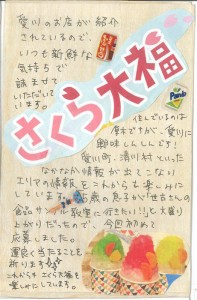 愛川のお店が紹介
されているので、
いつも新鮮な
気持ちで
読ませて
いただいて
います。
さくら大福
住んでいるのは
厚木ですが、愛川に
興味しんしんです!
愛川町、清川村といった
なかなか情報が出てこない
エリアの情報をこれからも楽しみに
しています。
歳の息子が「
食品サンプル
に行きたい!!」と大盛り
上がりだったので、今回初めて
応募しました。
運良く当たることを
祈ります
これからもさくら大福を
楽しみにしています。